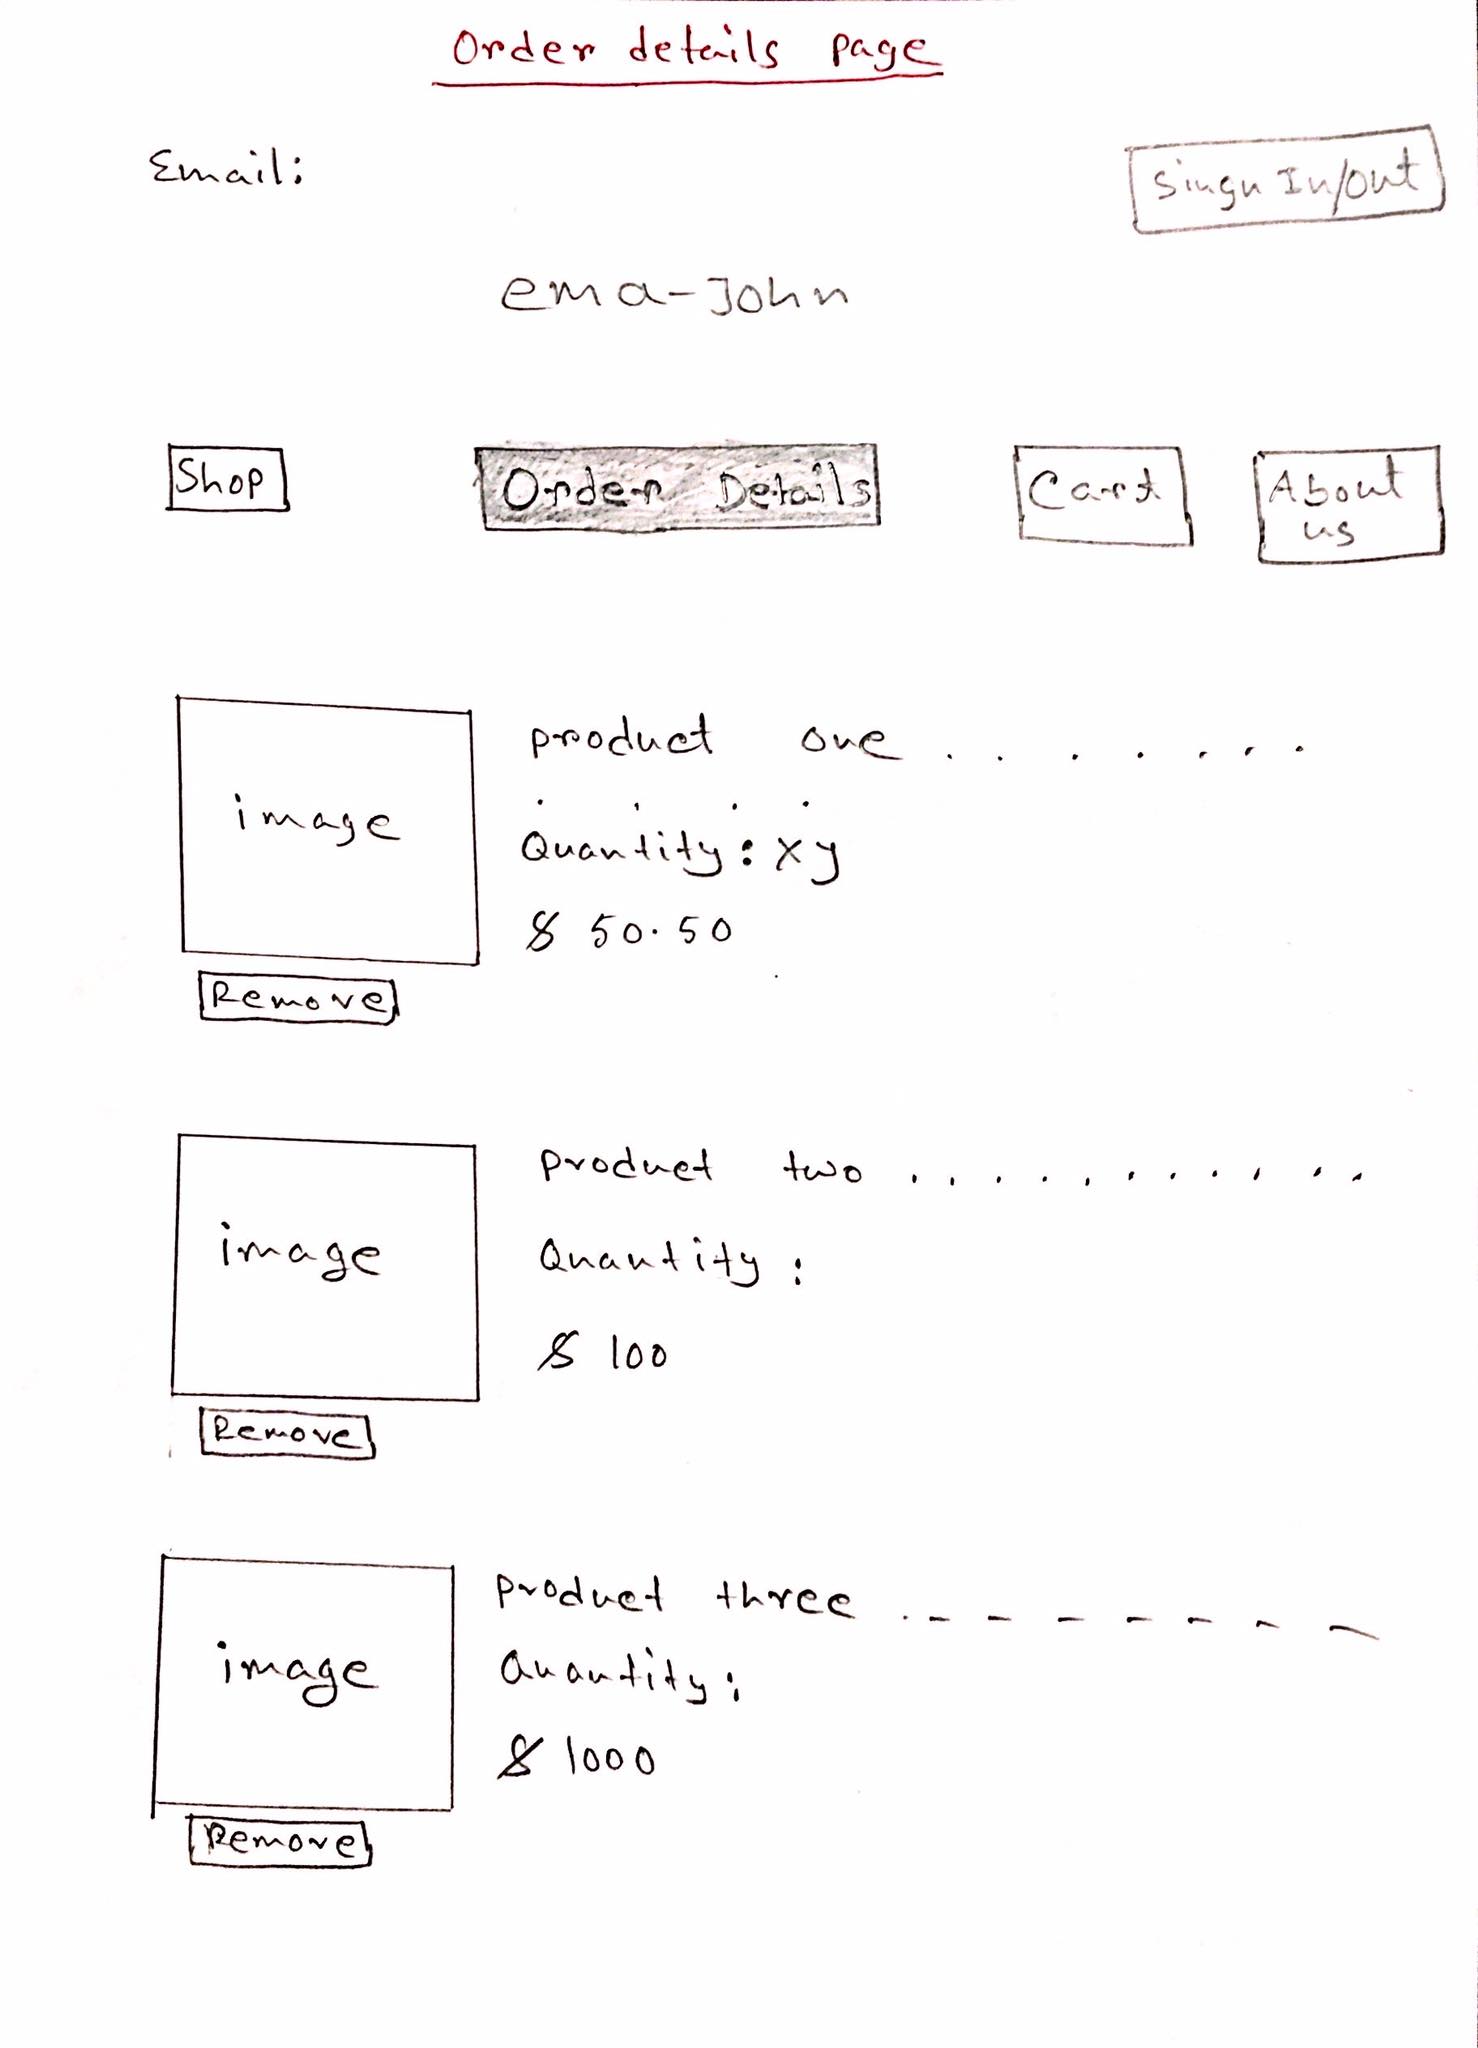 Order details page
Email:
Singn In/Out
ema-John
Shop
Order Details
Cart
About
us
image
product one . . . . . . .
. . . .
Quantity: xy
$ 50.50
Remove
image
product two . . . . . . . . . . .
Quantity:
$ 100
Remove
image
product three . - - - - - - -
Quantity:
$ 1000
Remove